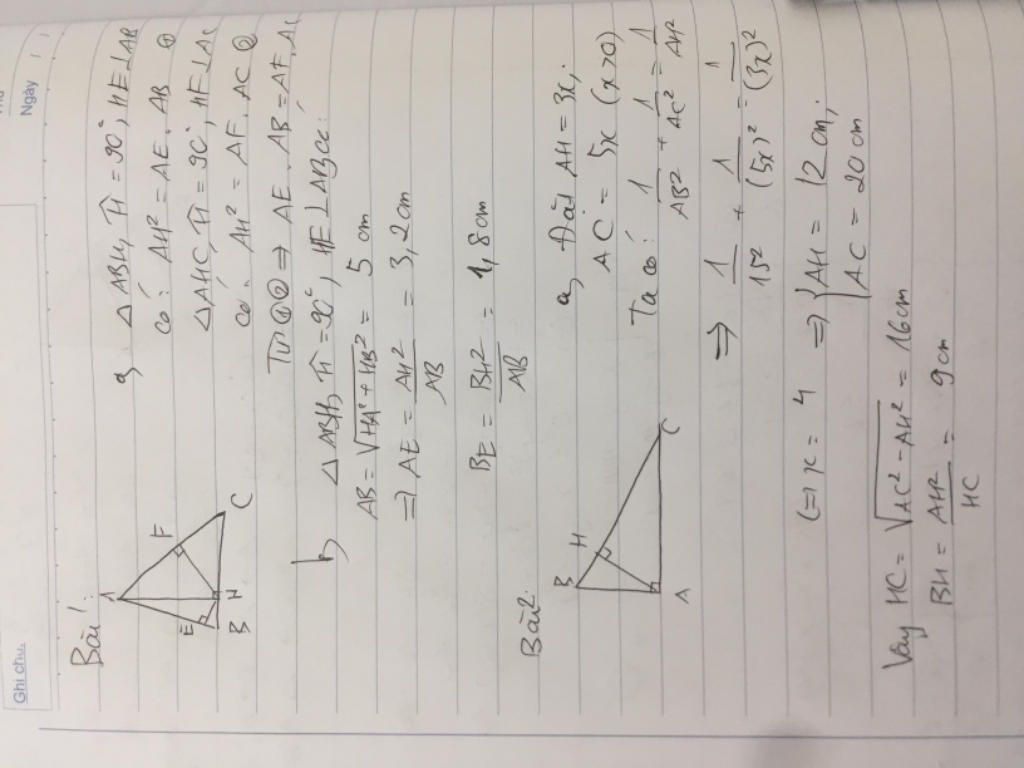 Ghi chú.
Ngày
Bài 1:
A
E
F
B
H
C
a, △ABH, Ĥ = 90°, HE ⊥ AB
có: AH² = AE. AB ①
△AHC, Ĥ = 90°, HF ⊥ AC
có: AH² = AF. AC ②
Từ ① ② ⇒ AE. AB = AF. AC
b, △ABH, Ĥ = 90°, HE ⊥ AB có:
AB = √HA² + HB² = 5 cm
⇒ AE = AH² / AB = 3,2 cm
BE = BH² / AB = 1,8 cm
Bài 2:
B
H
A
C
a, Đặt AH = 3x;
AC = 5x (x>0)
Ta có: 1/AB² + 1/AC² = 1/AH²
⇒ 1/15² + 1/(5x)² = 1/(3x)²
(⇒ x = 4 ⇒ { AH = 12 cm;
AC = 20 cm
Vậy HC = √AC² - AH² = 16 cm
BH = AH² / HC = 9 cm